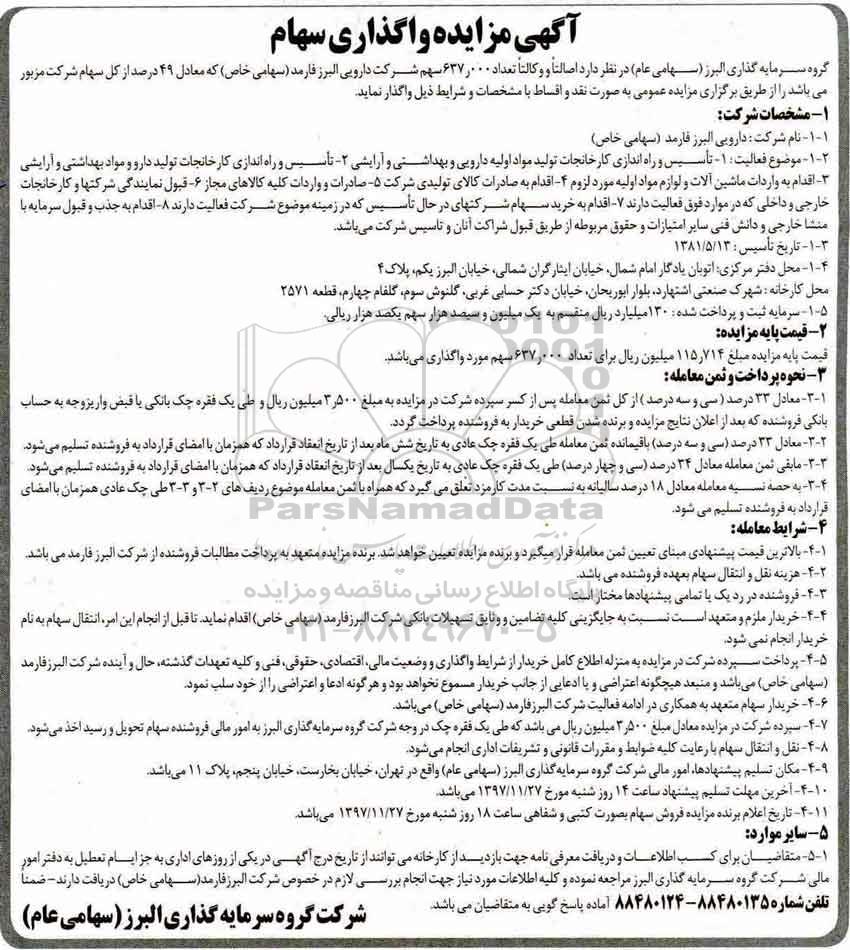 آگهی مزایده واگذاری سهام
گروه سرمایه گذاری البرز (سهامی عام) در نظر دارد اصالتاً و وکالتاً تعداد ۶۳۷٫۰۰۰ سهم شرکت دارویی البرز فارمد (سهامی خاص) که معادل ۴۹ درصد از کل سهام شرکت مزبور
می باشد را از طریق برگزاری مزایده عمومی به صورت نقد و اقساط با مشخصات و شرایط ذیل واگذار نماید.
۱- مشخصات شرکت:
۱-۱- نام شرکت : دارویی البرز فارمد (سهامی خاص)
۱-۲- موضوع فعالیت : ۱- تأسیس و راه اندازی کارخانجات تولید مواد اولیه دارویی و بهداشتی و آرایشی ۲- تأسیس و راه اندازی کارخانجات تولید دارو و مواد بهداشتی و آرایشی
۳- اقدام به واردات ماشین آلات و لوازم مواد اولیه مورد لزوم ۴- اقدام به صادرات کالای تولیدی شرکت ۵- صادرات و واردات کلیه کالاهای مجاز ۶- قبول نمایندگی شرکتها و کارخانجات
خارجی و داخلی که در موارد فوق فعالیت دارند ۷- اقدام به خرید سهام شرکتهای در حال تأسیس که در زمینه موضوع شرکت فعالیت دارند ۸- اقدام به جذب و قبول سرمایه با
منشا خارجی و دانش فنی سایر امتیازات و حقوق مربوطه از طریق قبول شراکت آنان و تاسیس شرکت می‌باشد.
۱-۳- تاریخ تأسیس : ۱۳۸۱/۵/۱۳
۱-۴- محل دفتر مرکزی: اتوبان یادگار امام شمال، خیابان ایثارگران شمالی، خیابان البرز یکم، پلاک۴
محل کارخانه : شهرک صنعتی اشتهارد، بلوار ابوریحان، خیابان دکتر حسابی غربی، گلنوش سوم، گلفام چهارم، قطعه ۲۵۷۱
۱-۵- سرمایه ثبت و پرداخت شده : ۱۳۰میلیارد ریال منقسم به یک میلیون و سیصد هزار سهم یکصد هزار ریالی.
۲- قیمت پایه مزایده:
قیمت پایه مزایده مبلغ ۱۱۵٫۷۱۴ میلیون ریال برای تعداد ۶۳۷٫۰۰۰ سهم مورد واگذاری می‌باشد.
۳- نحوه پرداخت و ثمن معامله:
۳-۱- معادل ۳۳ درصد (سی و سه درصد) از کل ثمن معامله پس از کسر سپرده شرکت در مزایده به مبلغ ۳٫۵۰۰ میلیون ریال و طی یک فقره چک بانکی یا قبض واریزوجه به حساب
بانکی فروشنده که بعد از اعلان نتایج مزایده و برنده شدن قطعی خریدار به فروشنده پرداخت گردد.
۳-۲- معادل ۳۳ درصد (سی و سه درصد) باقیمانده ثمن معامله طی یک فقره چک عادی به تاریخ شش ماه بعد از تاریخ انعقاد قرارداد که همزمان با امضای قرارداد به فروشنده تسلیم می‌شود.
۳-۳- مابقی ثمن معامله معادل ۳۴ درصد (سی و چهار درصد) طی یک فقره چک عادی به تاریخ یکسال بعد از تاریخ انعقاد قرارداد که همزمان با امضای قرارداد به فروشنده تسلیم می‌شود.
۳-۴- به حصه نسیه معامله معادل ۱۸ درصد سالیانه به نسبت مدت کارمزد تعلق می گیرد که همراه با ثمن معامله موضوع ردیف های ۳-۲ و ۳-۳ طی چک عادی همزمان با امضای
قرارداد به فروشنده تسلیم می شود.
ParsNamadData
۴- شرایط معامله:
۴-۱- بالاترین قیمت پیشنهادی مبنای تعیین ثمن معامله قرار میگیرد و برنده مزایده تعیین خواهد شد. برنده مزایده متعهد به پرداخت مطالبات فروشنده از شرکت البرز فارمد می باشد.
۴-۲- هزینه نقل و انتقال سهام بعهده فروشنده می باشد.
پایگاه اطلاع رسانی مناقصه و مزایده
۴-۳- فروشنده در رد یک یا تمامی پیشنهادها مختار است.
۴-۴- خریدار ملزم و متعهد است نسبت به جایگزینی کلیه تضامین و وثایق تسهیلات بانکی شرکت البرزفارمد (سهامی خاص) اقدام نماید. تا قبل از انجام این امر، انتقال سهام به نام
خریدار انجام نمی شود.
۰۲۱-۸۸۳۴۹۶۷۰-۵
۴-۵- پرداخت سپرده شرکت در مزایده به منزله اطلاع کامل خریدار از شرایط واگذاری و وضعیت مالی، اقتصادی، حقوقی، فنی و کلیه تعهدات گذشته، حال و آینده شرکت البرزفارمد
(سهامی خاص) می‌باشد و منبعد هیچگونه اعتراضی و یا ادعایی از جانب خریدار مسموع نخواهد بود و هر گونه ادعا و اعتراضی را از خود سلب نمود.
۴-۶- خریدار سهام متعهد به همکاری در ادامه فعالیت شرکت البرزفارمد (سهامی خاص) می‌باشد.
۴-۷- سپرده شرکت در مزایده معادل مبلغ ۳٫۵۰۰ میلیون ریال می باشد که طی یک فقره چک در وجه شرکت گروه سرمایه گذاری البرز به امور مالی فروشنده سهام تحویل و رسید اخذ می‌شود.
۴-۸- نقل و انتقال سهام با رعایت کلیه ضوابط و مقررات قانونی و تشریفات اداری انجام می‌شود.
۴-۹- مکان تسلیم پیشنهادها، امور مالی شرکت گروه سرمایه‌گذاری البرز (سهامی عام) واقع در تهران، خیابان بخارست، خیابان پنجم، پلاک ۱۱ می‌باشد.
۴-۱۰- آخرین مهلت تسلیم پیشنهاد ساعت ۱۴ روز شنبه مورخ ۱۳۹۷/۱۱/۲۷ می‌باشد.
۴-۱۱- تاریخ اعلام برنده مزایده فروش سهام بصورت کتبی و شفاهی ساعت ۱۸ روز شنبه مورخ ۱۳۹۷/۱۱/۲۷ می‌باشد.
۵- سایر موارد:
۵-۱- متقاضیان برای کسب اطلاعات و دریافت معرفی نامه جهت بازدید از کارخانه می توانند از تاریخ درج آگهی در یکی از روزهای اداری به جز ایام تعطیل به دفتر امور
مالی شرکت گروه سرمایه گذاری البرز مراجعه نموده و کلیه اطلاعات مورد نیاز جهت انجام بررسی لازم در خصوص شرکت البرزفارمد(سهامی خاص) دریافت دارند - ضمناً
تلفن شماره ۸۸۴۸۰۱۳۵-۸۸۴۸۰۱۲۴ آماده پاسخ گویی به متقاضیان می باشد.
شرکت گروه سرمایه گذاری البرز (سهامی عام)